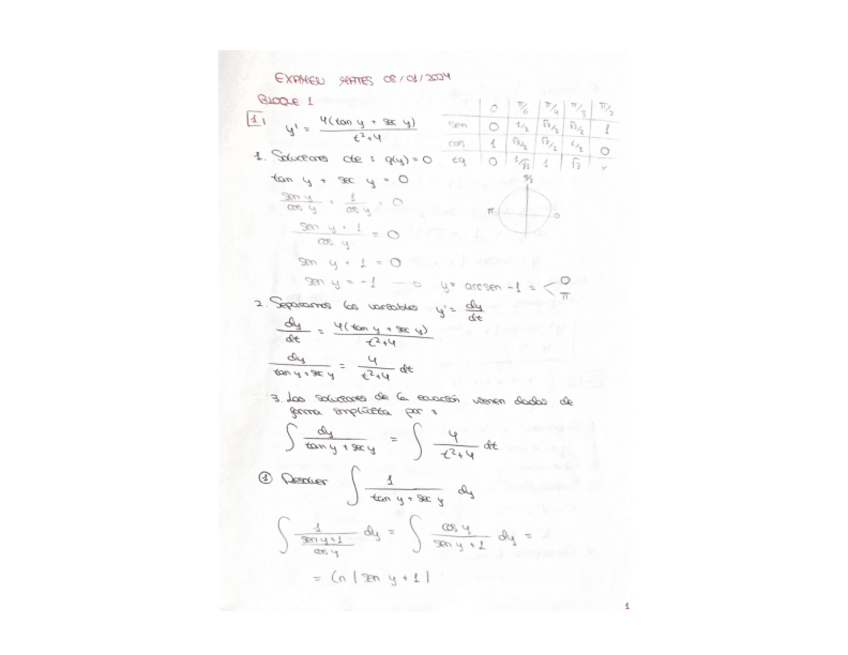 EXAMEN MATES 08/01/2024
BLOQUE 1
1. y' = 4(tan y + sec y) / t²+4
0 π/6 π/4 π/3 π/2
sen 0 1/2 √2/2 √3/2 1
cos 1 √3/2 √2/2 1/2 0
tg 0 1/√3 1 √3 x
1. Soluciones de : g(y) = 0
tan y + sec y = 0
π/2
π 0
sen y / cos y + 1 / cos y = 0
sen y + 1 / cos y = 0
sen y + 1 = 0
sen y = -1 → y = arcsen -1 = < 0 π
2. Separamos las variables y' = dy/dt
dy/dt = 4(tan y + sec y) / t²+4
dy / tan y + sec y = 4 / t²+4 dt
3. Las soluciones de la ecuación vienen dadas de
forma implícita por :
∫ dy / tan y + sec y = ∫ 4 / t²+4 dt
① Resolver ∫ 1 / tan y + sec y dy
∫ 1 / (sen y+1 / cos y) dy = ∫ cos y / sen y + 1 dy =
= ln | sen y + 1 |
1